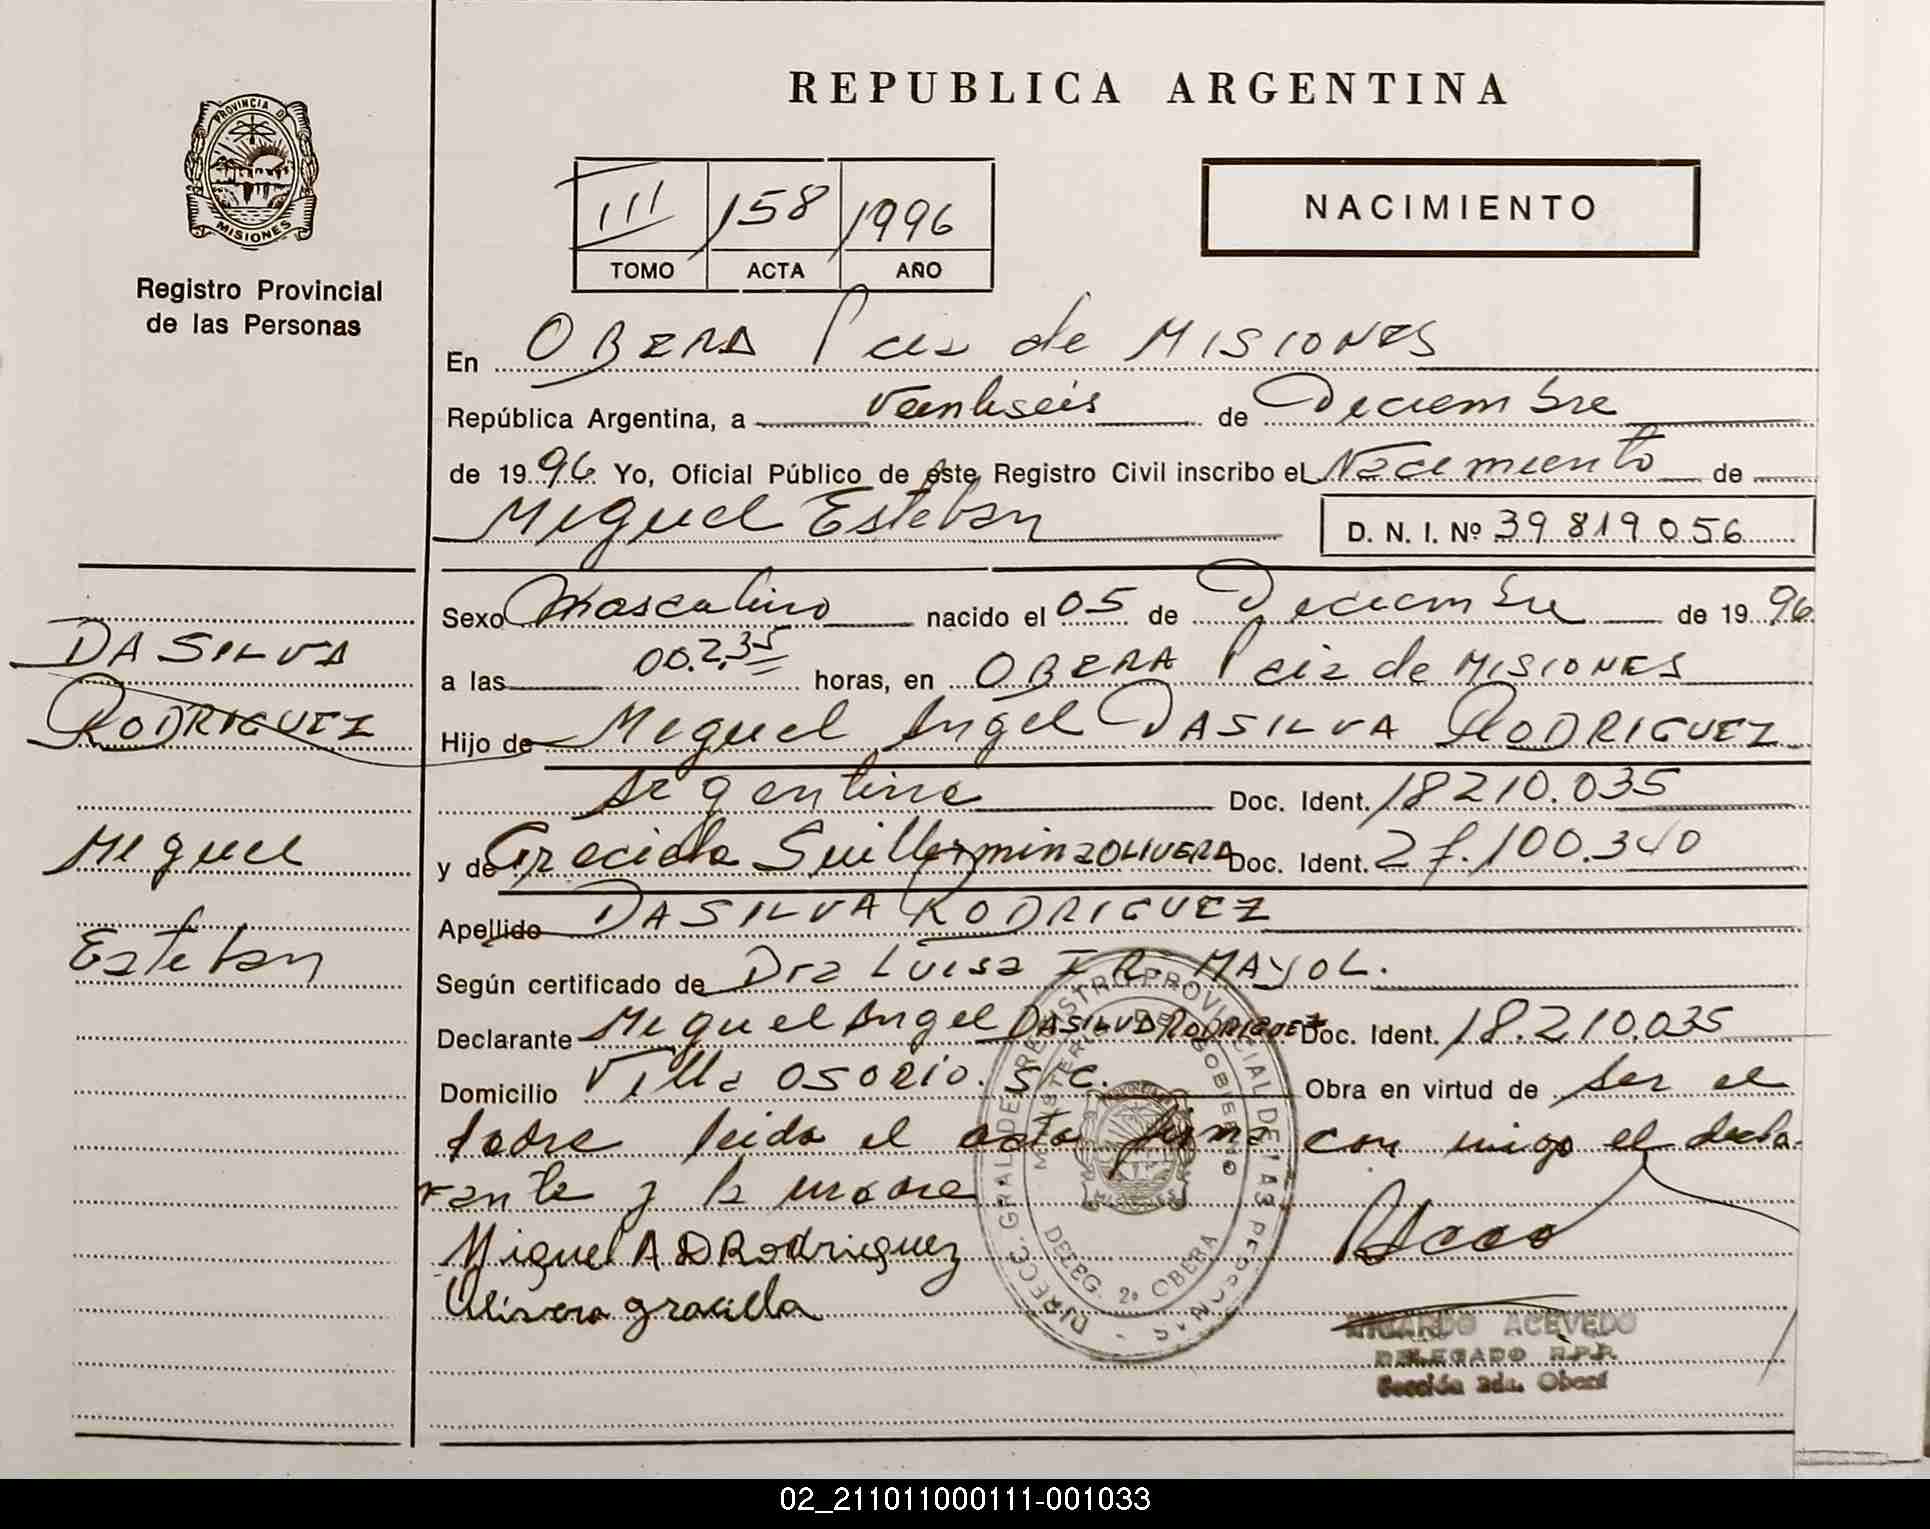 REPUBLICA ARGENTINA
PROVINCIA DE
MISIONES
Registro Provincial
de las Personas
III 158 1996
TOMO ACTA AÑO
NACIMIENTO
En OBERA Pcia de MISIONES
República Argentina, a veintiseis de Diciembre
de 1996 Yo, Oficial Público de este Registro Civil inscribo el Nacimiento de
Miguel Esteban D. N. I. Nº 39 819 056
Sexo Masculino nacido el 05 de Diciembre de 1996
a las 00.2,35 horas, en OBERA Pcia de MISIONES
Hijo de Miguel Angel DASILVA RODRIGUEZ
argentino Doc. Ident. 18210.035
y de Graciela Guillermina OLIVERA Doc. Ident. 27.100.340
Apellido DASILVA RODRIGUEZ
Según certificado de Dra Luisa I R. MAYOL.
Declarante Miguel Angel DASILVA RODRIGUEZ Doc. Ident. 18.210.035
Domicilio Villa OSORIO. S/C. Obra en virtud de ser el
padre leida el acta firma con migo el decla-
rante y la madre
Miguel A D Rodrieguez
Olivera graciela
DASILVA
RODRIGUEZ
Miguel
Esteban
DIRECC. GRAL. DE REGISTRO PROVINCIAL DE LAS PERSONAS
MINISTERIO DE GOBIERNO
DELEG. 2ª OBERA
RICARDO ACEVEDO
DELEGADO R.P.P.
Sección 2da. Oberá
02_211011000111-001033